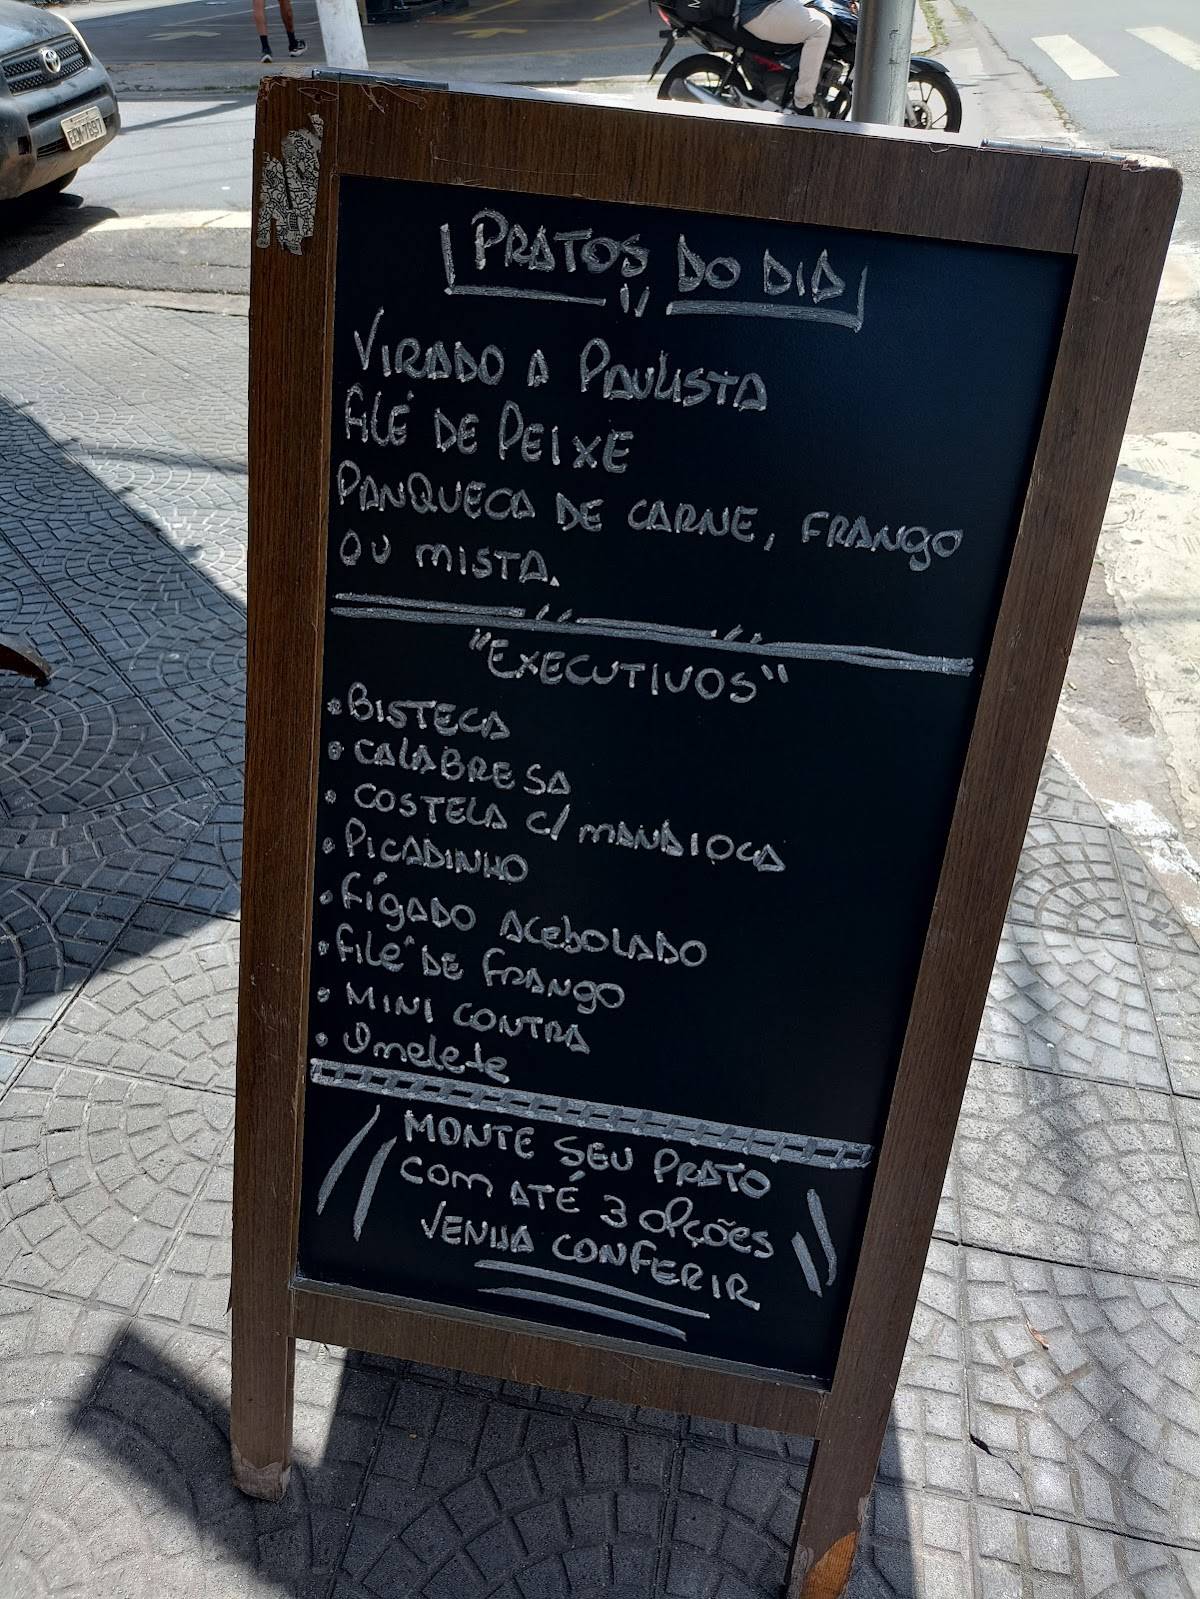 PRATOS DO DIA
VIRADO A PAULISTA
FILÉ DE PEIXE
PANQUECA DE CARNE, FRANGO
OU MISTA.
"EXECUTIVOS"
• BISTECA
• CALABRESA
• COSTELA C/ MANDIOCA
• PICADINHO
• FÍGADO ACEBOLADO
• FILÉ DE FRANGO
• MINI CONTRA
• Omelete
MONTE SEU PRATO
COM ATÉ 3 OPÇÕES
VENHA CONFERIR